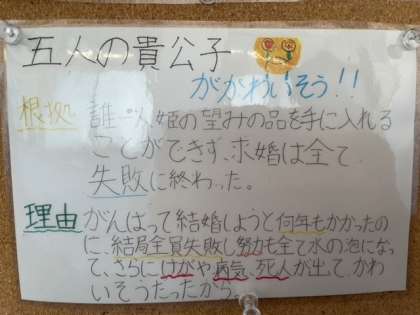 五人の貴公子
がかわいそう!!
根拠 誰一人姫の望みの品を手に入れる
ことができず、求婚は全て
失敗に終わった。
理由 がんばって結婚しようと何年もかかったの
に、結局全員失敗し努力も全て水の泡になっ
て、さらにけがや病気、死人が出て、かわ
いそうだったから。